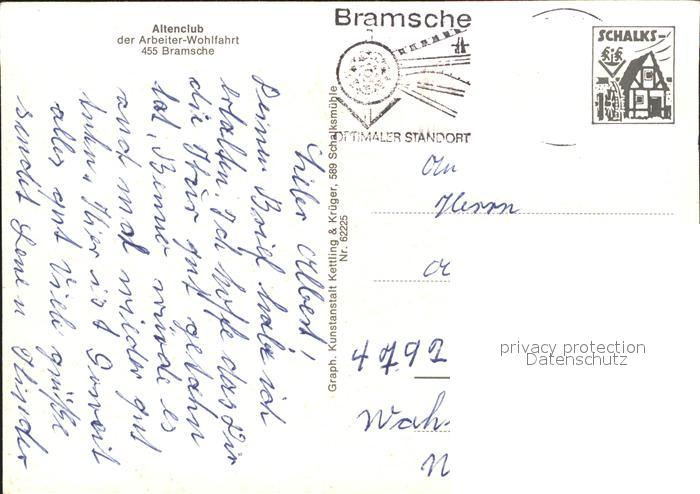 Altenclub
der Arbeiter-Wohlfahrt
455 Bramsche
Bramsche
OPTIMALER STANDORT
SCHALKS-
Graph. Kunstanstalt Kettling & Krüger, 589 Schalksmühle
Nr. 62225
Lieber Albert!
Deinen Brief habe ich
erhalten. Ich hoffe das Dir
die Kur gut getan
hat, Renner würde es
auch mal wieder gut
tuhn. Hier ist Soweit
alles gut Viele grüße
sendet Leni u Kinder
An
Herrn
A
4792
Wah
N
privacy protection
Datenschutz